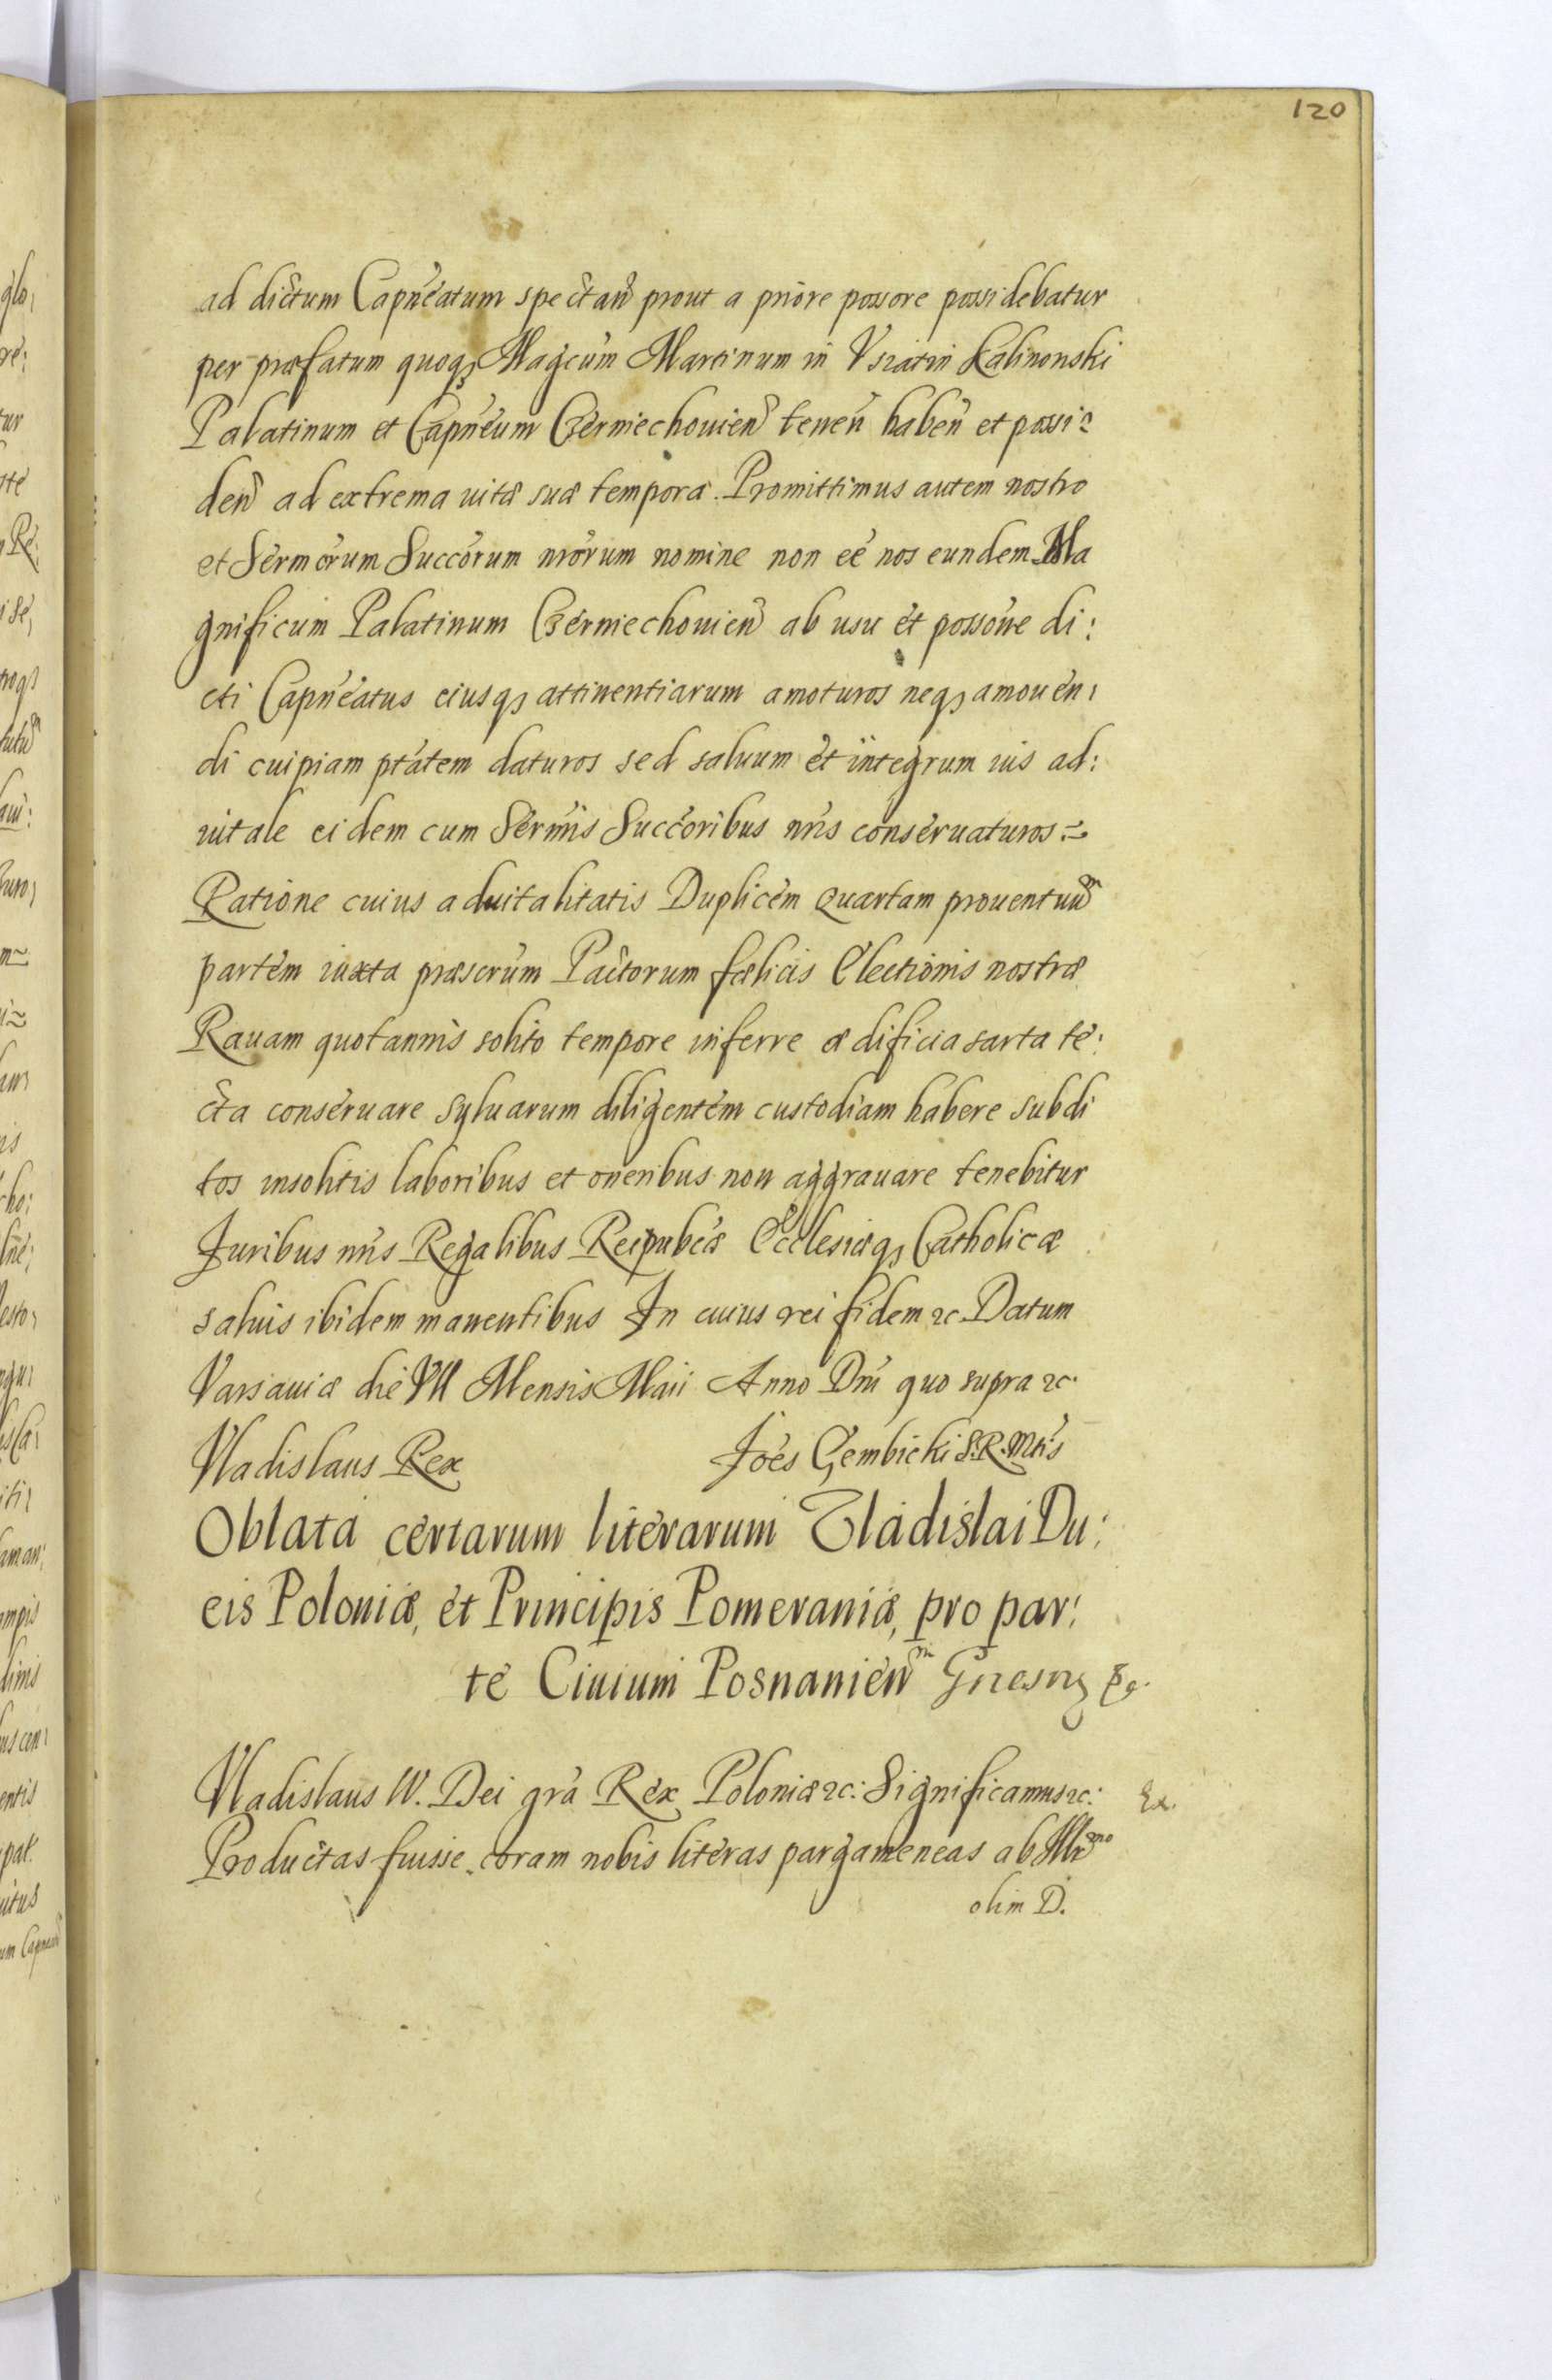 120
ad dictum Capneatum spectan prout a priore possore possidebatur
per præfatum quoqȝ Magcum Martinum in Usiatin Kalinonski
Palatinum et Capneum Czerniechouien tenen haben et possi=
den ad extrema uitæ suæ tempora. Promittimus autem nostro
et Sermorum Succorum nrorum nomine non ee nos eundem Ma
gnificum Palatinum Czerniechouien ab usu et possone di:
cti Capneatus eiusqȝ attinentiarum amoturos neqȝ amouen:
di cuipiam ptatem daturos sed saluum et integrum ius ad:
uitale eidem cum Sermis Succoribus nris conseruaturos =
Ratione cuius aduitalitatis Duplicem quartam prouentuum
partem iuxta præscrum Pactorum fælicis Electionis nostræ
Rauam quotannis solito tempore inferre ædificia sarta te:
cta conseruare syluarum diligentem custodiam habere subdi
tos insolitis laboribus et oneribus non aggrauare tenebitur
Juribus nris Regalibus Reipubcæ Ecclesiæqȝ Catholicæ
saluis ibidem manentibus In cuius rei fidem ꝛc. Datum
Varsauiæ die VII Mensis Maii Anno Dni quo supra ꝛc.
Vladislaus Rex Joes Gembicki S.R.Mtis
Oblata certarum literarum Vladislai Du:
cis Poloniæ, et Principis Pomeraniæ, pro par:
te Ciuium Posnanien Gnesn
Vladislaus IV. Dei gra Rex Poloniæ ꝛc: Significamus ꝛc: Ex.
Productas fuisse coram nobis literas pargameneas ab Illrmo
olim D.